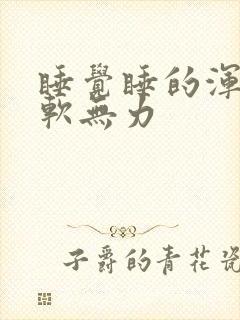 睡覺睡的渾
軟無力
子爵的青花瓷